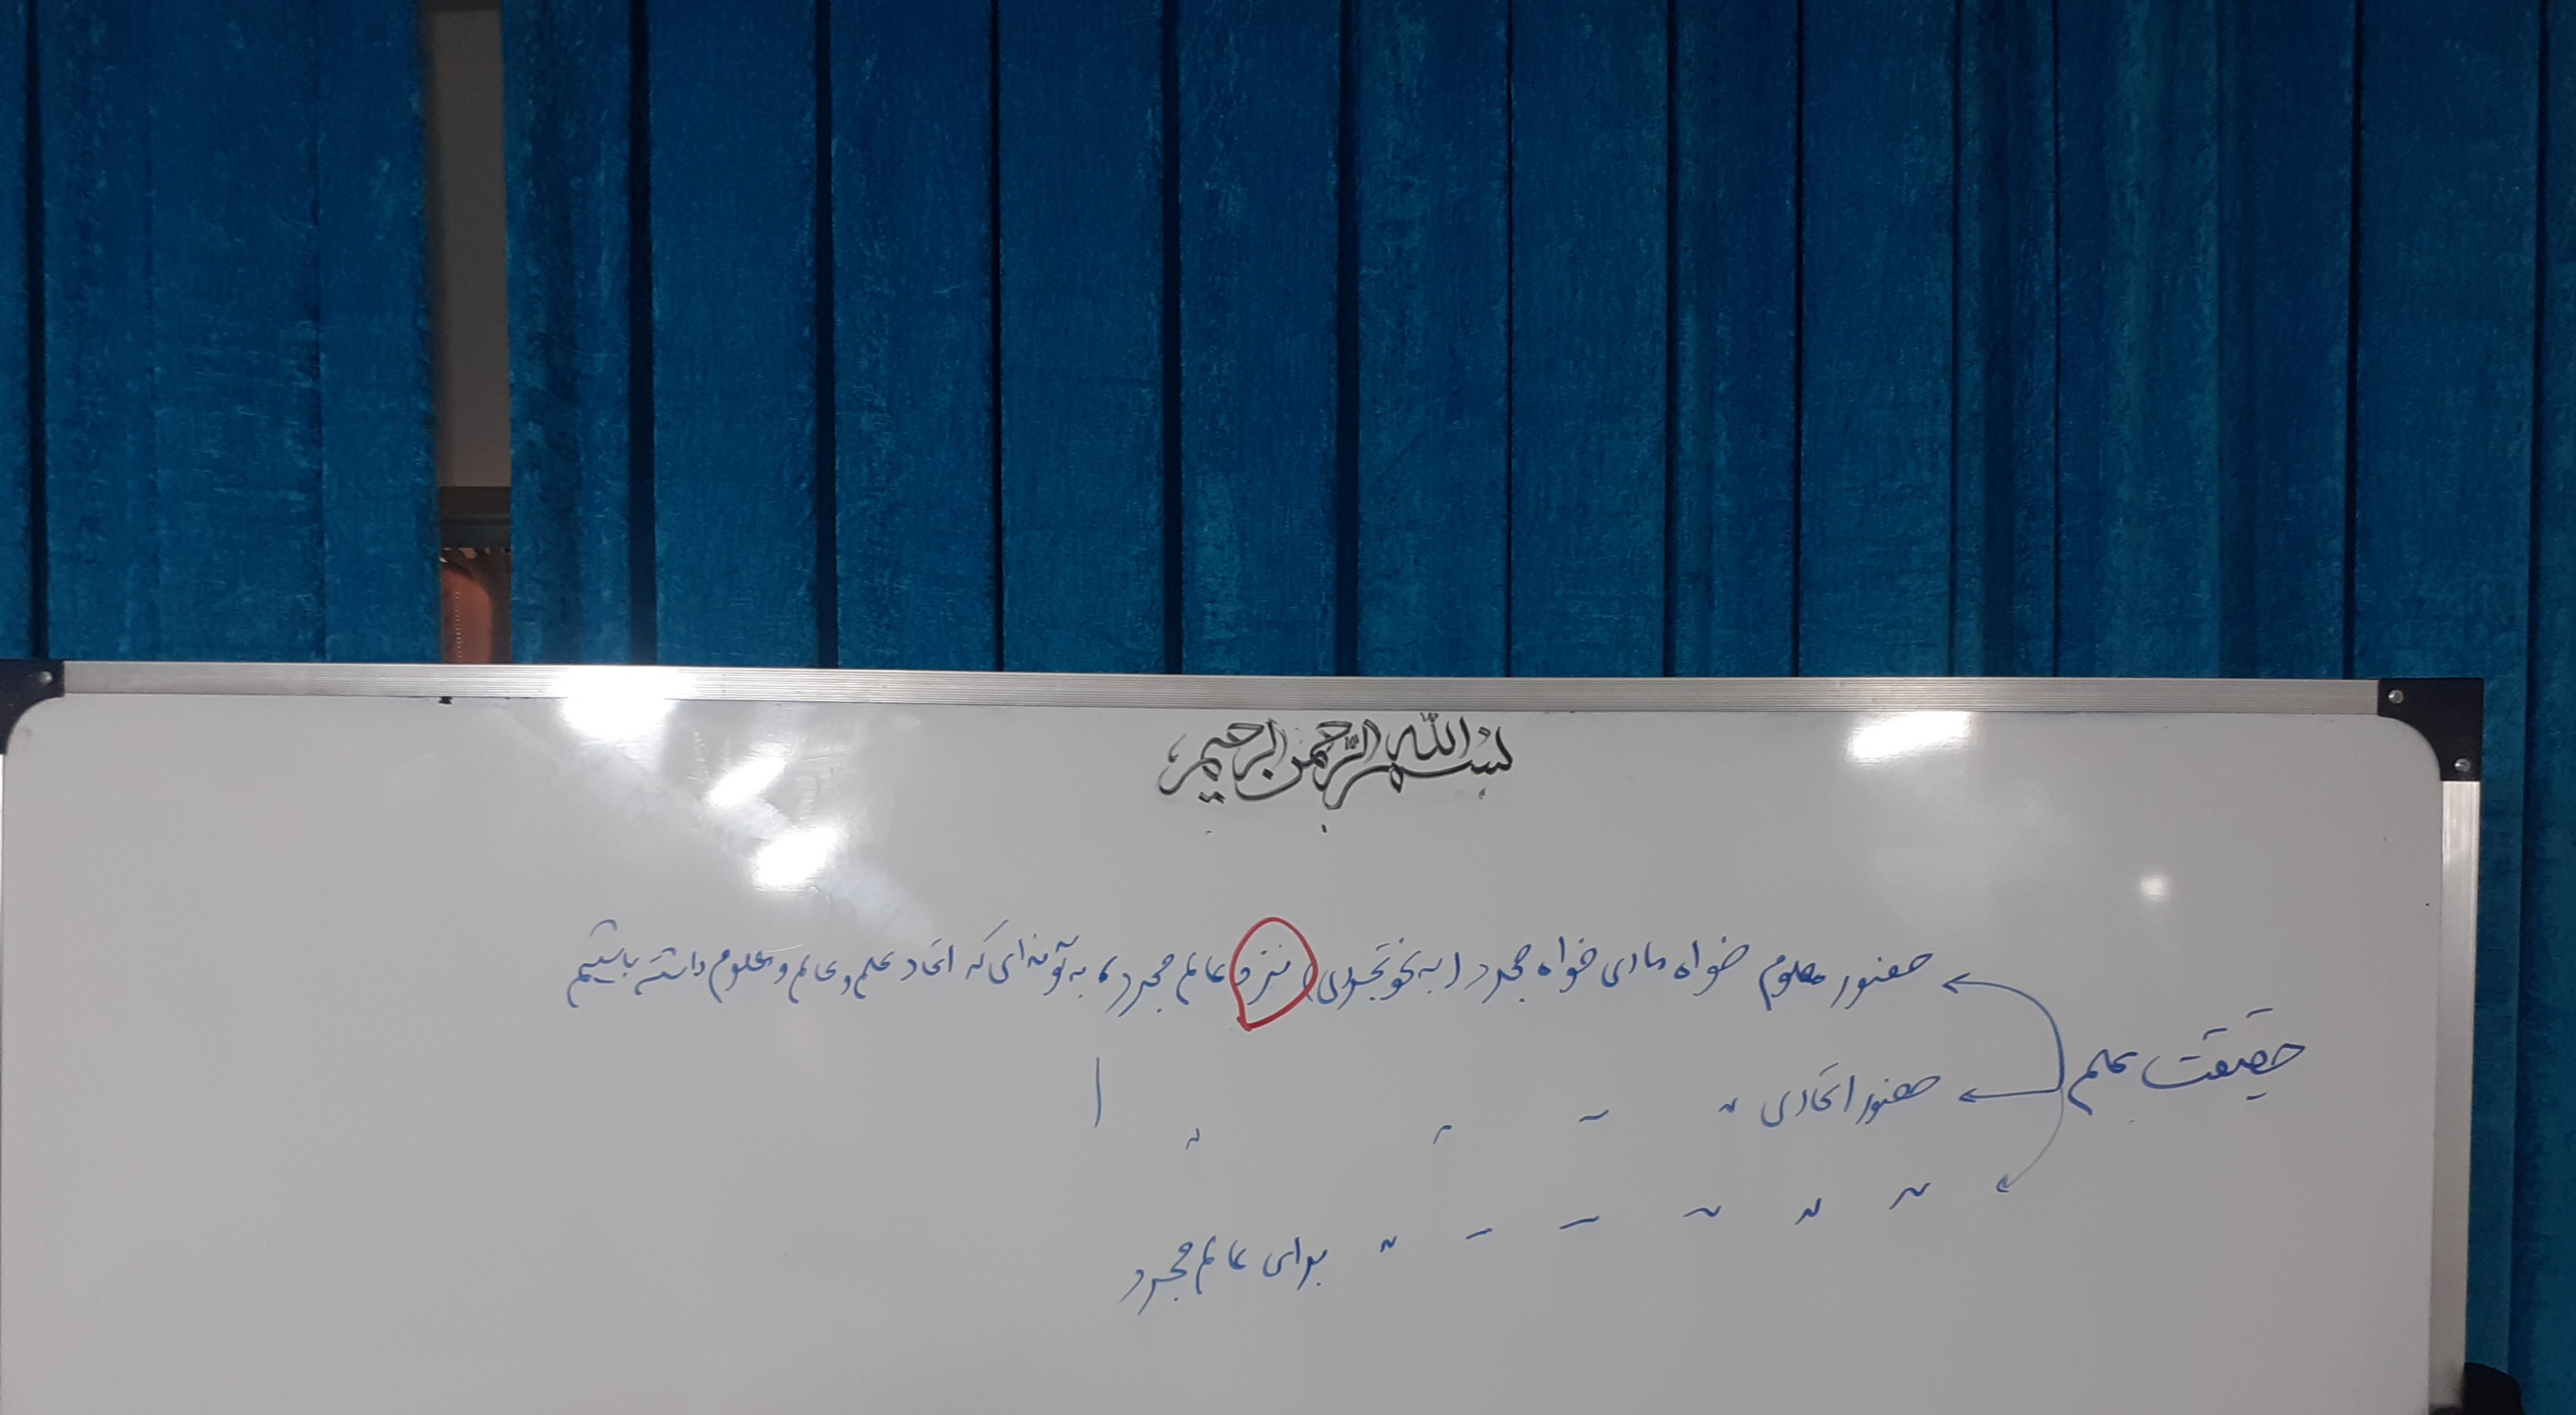 بسم الله الرحمن الرحیم
حضور معلوم خواه مادی خواه مجرد (به نحو تجردی) نزد عالم مجرد، به گونه‌ای که اتحاد علم و عالم و معلوم داشته باشیم
حقیقت علم
حضور اتحادی 〃 〃 〃 〃
〃 〃 〃 〃 〃 〃 برای عالم مجرد